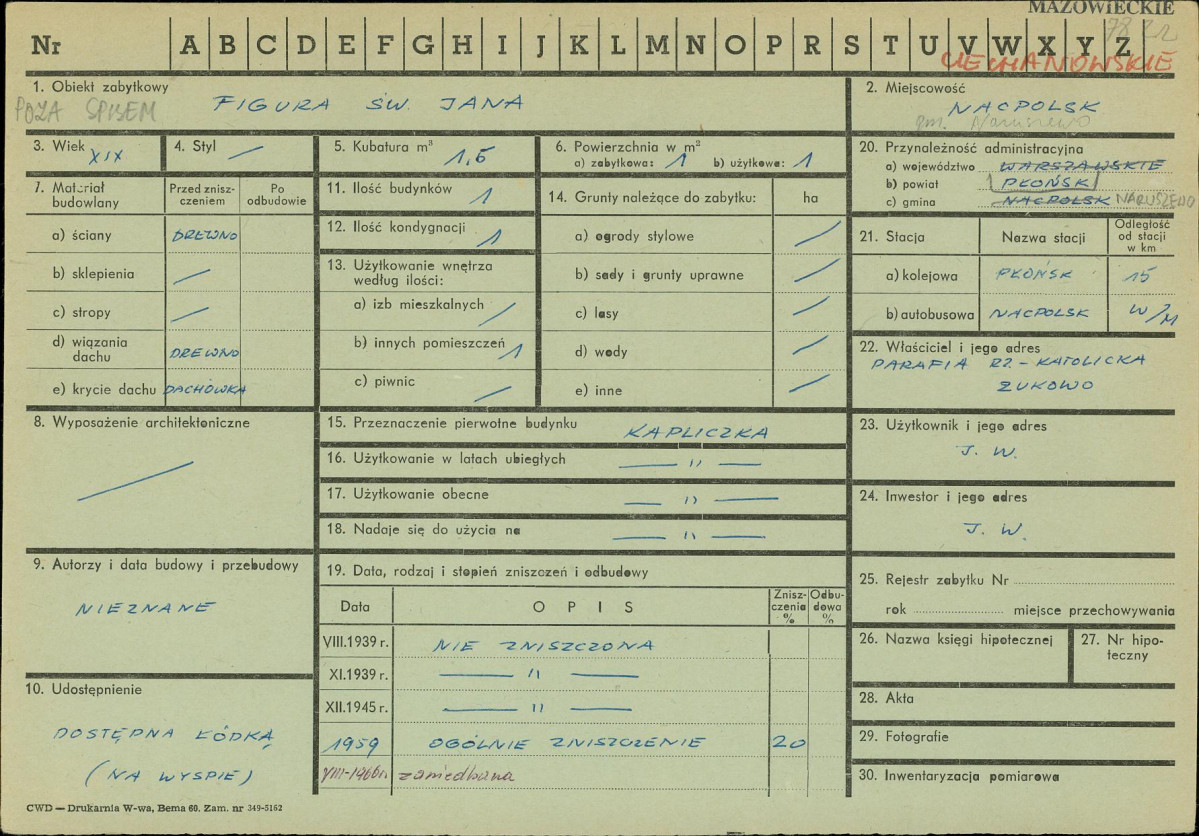 MAZOWIECKIE
Nr A B C D E F G H I J K L M N O P R S T U V W X Y Z
CIECHANOWSKIE
1. Obiekt zabytkowy
POZA SPISEM
FIGURA ŚW. JANA
2. Miejscowość
NACPOLSK
gm. Naruszewo
3. Wiek XIX
4. Styl —
5. Kubatura m³ 1,5
6. Powierzchnia w m²
a) zabytkowa: 1 b) użytkowa: 1
20. Przynależność administracyjna
a) województwo WARSZAWSKIE
b) powiat PŁOŃSK
c) gmina NACPOLSK NARUSZEWO
7. Materiał budowlany
Przed zniszczeniem
Po odbudowie
a) ściany DREWNO
b) sklepienia —
c) stropy —
d) wiązania dachu DREWNO
e) krycie dachu DACHÓWKA
11. Ilość budynków 1
12. Ilość kondygnacji 1
13. Użytkowanie wnętrza
według ilości:
a) izb mieszkalnych /
b) innych pomieszczeń 1
c) piwnic —
14. Grunty należące do zabytku: ha
a) ogrody stylowe —
b) sady i grunty uprawne —
c) lasy —
d) wody —
e) inne —
21. Stacja Nazwa stacji Odległość od stacji w km
a) kolejowa PŁOŃSK 15
b) autobusowa NACPOLSK W/M
22. Właściciel i jego adres
PARAFIA RZ.-KATOLICKA
ŻUKOWO
8. Wyposażenie architektoniczne
—
15. Przeznaczenie pierwotne budynku KAPLICZKA
16. Użytkowanie w latach ubiegłych — " —
17. Użytkowanie obecne — " —
18. Nadaje się do użycia na — " —
23. Użytkownik i jego adres
J. W.
24. Inwestor i jego adres
J. W.
9. Autorzy i data budowy i przebudowy
NIEZNANE
19. Data, rodzaj i stopień zniszczeń i odbudowy
Data OPIS Zniszczenia % Odbudowa %
VIII.1939 r. NIE ZNISZCZONA
XI.1939 r. — " —
XII.1945 r. — " —
1959 OGÓLNIE ZNISZCZENIE 20
VIII-1966 r. zaniedbana
10. Udostępnienie
DOSTĘPNA ŁÓDKĄ
(NA WYSPIE)
25. Rejestr zabytku Nr
rok miejsce przechowywania
26. Nazwa księgi hipotecznej
27. Nr hipoteczny
28. Akta
29. Fotografie
30. Inwentaryzacja pomiarowa
CWD — Drukarnia W-wa, Bema 60. Zam. nr 349-5162